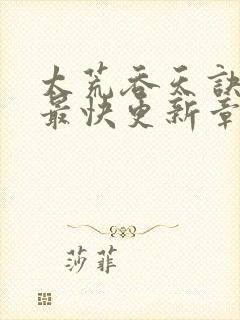 大荒吞天訣
最快更新章
莎菲